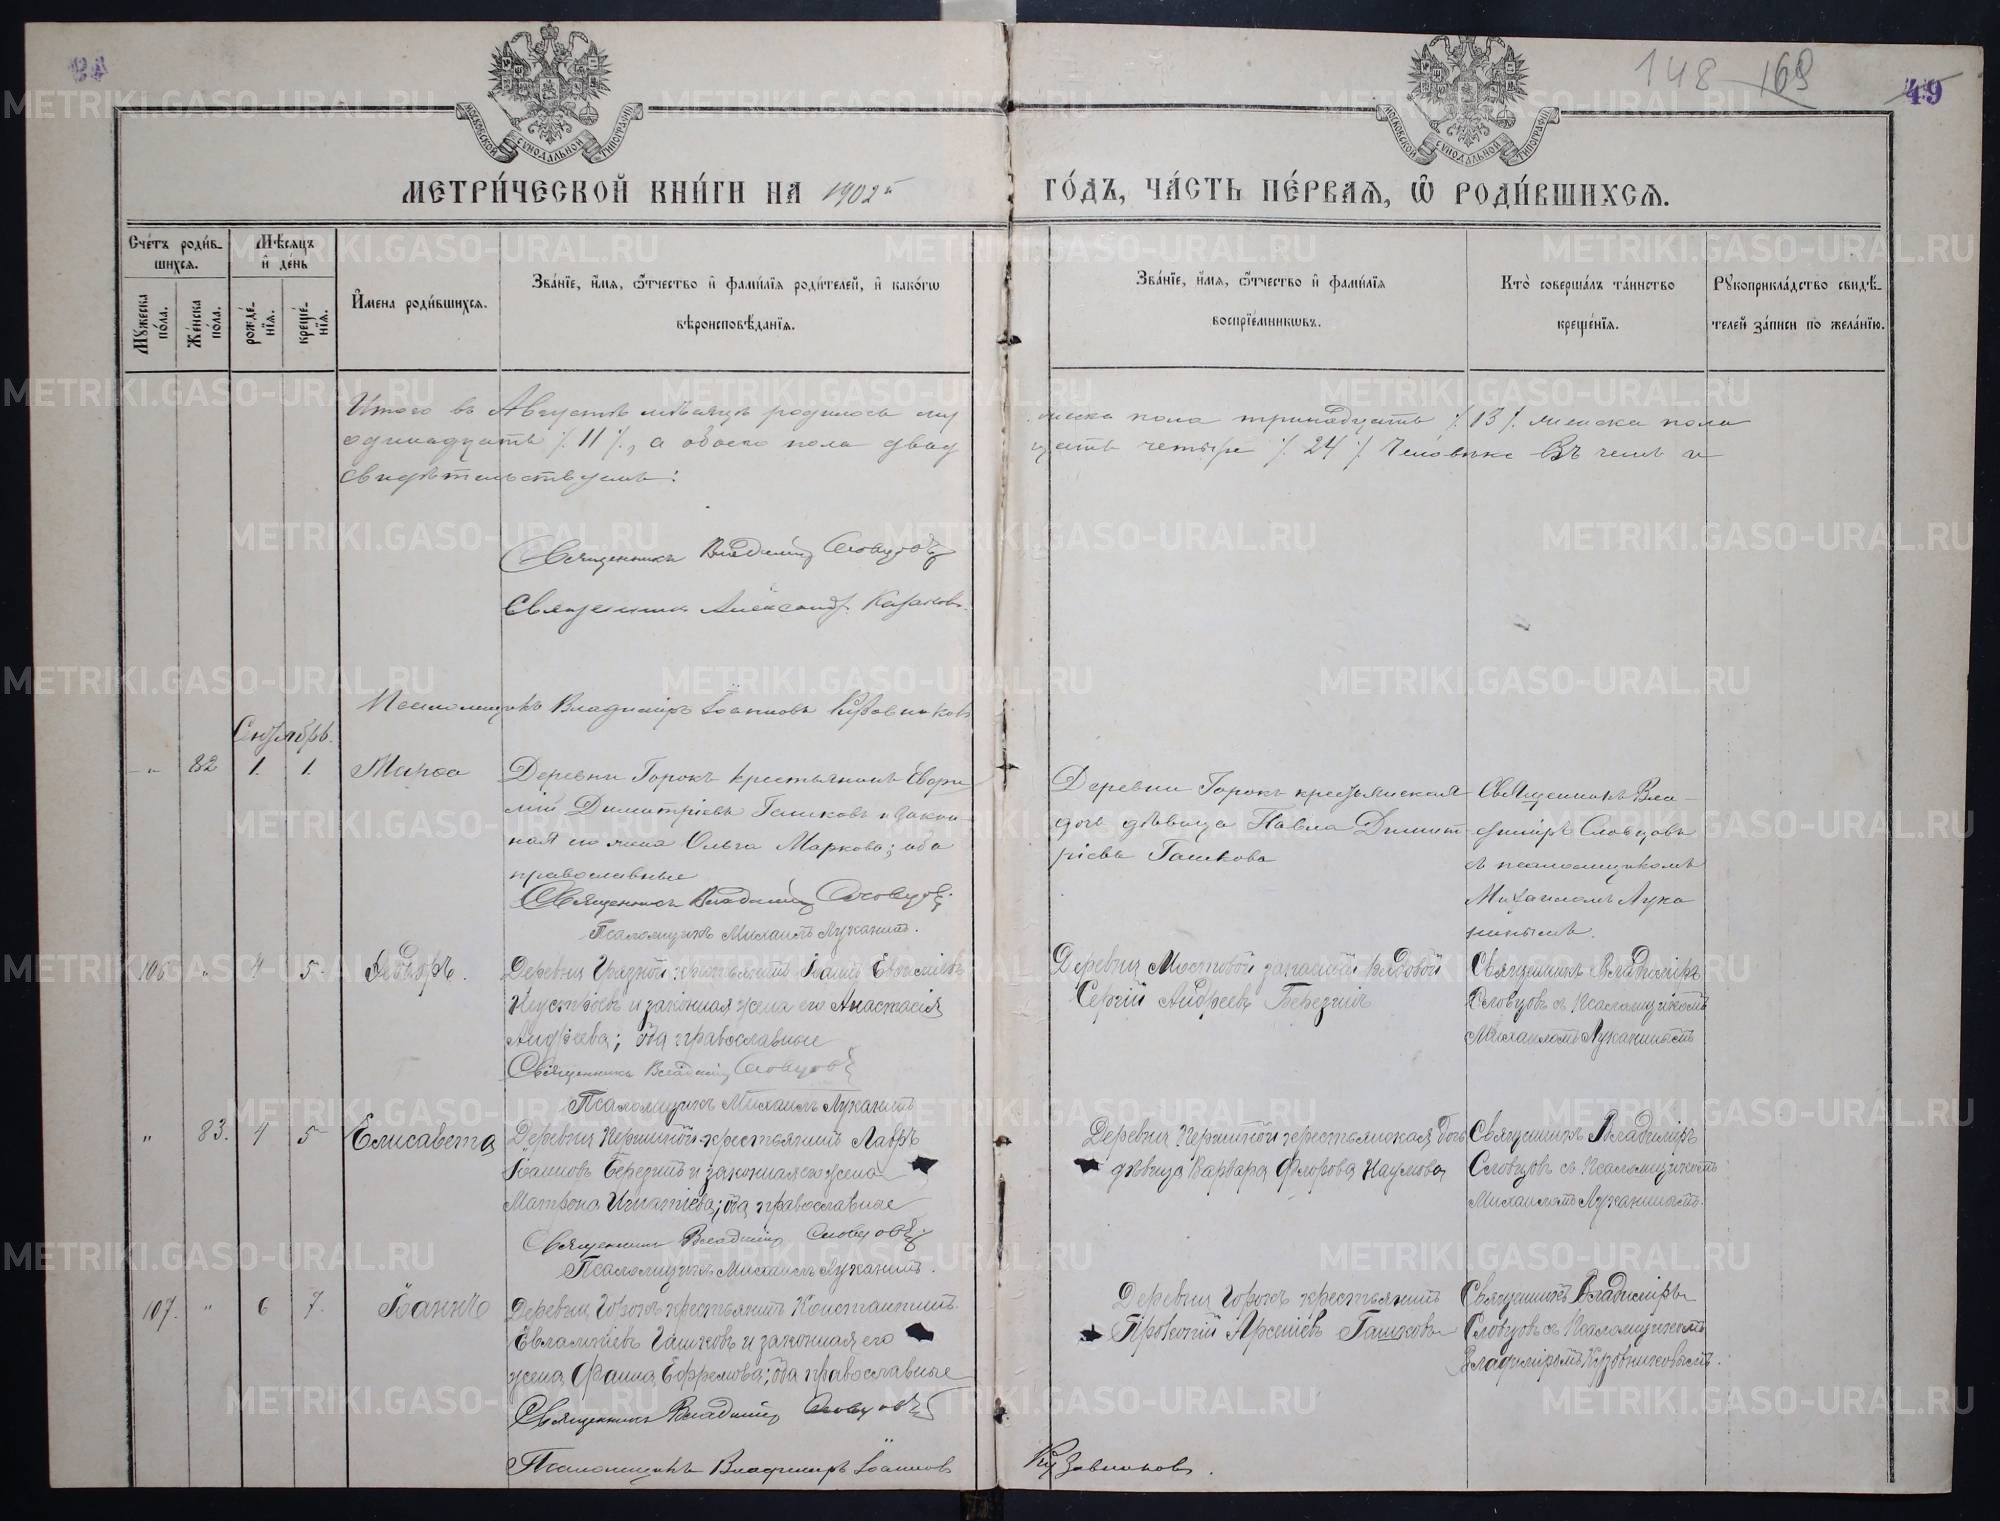 148 169
49
МОСКОВСКОЙ СѴНОДАЛЬНОЙ ТИПОГРАФІИ
МОСКОВСКОЙ СѴНОДАЛЬНОЙ ТИПОГРАФІИ
МЕТРИ́ЧЕСКОЙ КНИ́ГИ НА 1902й ГО́ДЪ, ЧА́СТЬ ПЕ́РВАЯ, Ѡ҆ РОДИ́ВШИХСЯ.
Сче́тъ роди́в-
шихся.
Мѣ́сяцъ
и҆ де́нь
Мꙋ́жеска
по́ла.
Же́нска
по́ла.
рожде́-
нїя.
креще́-
нїя.
И҆мена роди́вшихся.
Зва́нїе, и҆́мя, ѻ҆́тчество и҆ фами́лїя роди́телей, и҆ како́гѡ
вѣроисповѣ́данїя.
Зва́нїе, и҆́мя, ѻ҆́тчество и҆ фами́лїя
воспрїе́мникѡвъ.
Кто̀ соверша́лъ та́инство
креще́нїя.
Рꙋкоприкла́дство свидѣ́-
телей за́писи по жела́нїю.
Итого въ Августѣ мѣсяцѣ родилось му
жеска пола тринадцать /13/ женска пола
одинадцать /11/, а обоего пола двад
цать четыре /24/ человѣка Въ чемъ и
свидѣтельствуемъ:
Священникъ Владимір Словцовъ
Священникъ Александр Казаковъ
Псаломщикъ Владиміръ Іоанновъ Кузовниковъ
Сентябрь.
" 82 1. 1. Марѳа
Деревни Горокъ крестьянинъ Евѳи
мій Димитріевъ Гашковъ и закон-
ная его жена Ольга Маркова; оба
православные
Священникъ Владимір Словцовъ
Псаломщикъ Михаилъ Луканинъ.
Деревни Горокъ крестьянская
дочь дѣвица Павла Димит
ріева Гашкова
Священникъ Вла-
диміръ Словцовъ
съ псаломщикомъ
Михаиломъ Лука
нинымъ.
106 " 4 5. Ѳеодоръ.
Деревни Грязной крестьянинъ Іоаннъ Евѳиміевъ
и законная жена его Анастасія
Андреева; оба православные
Священникъ Владимір Словцовъ
Псаломщикъ Михаилъ Луканинъ
Деревни Мостовой запасный рядовой
Сергій Андреевъ Березинъ
Священникъ Владиміръ
Словцовъ съ Псаломщикомъ
Михаиломъ Луканинымъ
" 83. 4 5 Елисавета
Деревни Першиной крестьянинъ Лавръ
Іоанновъ Березинъ и законная его жена
Матрона Игнатіева; оба православные
Священникъ Владимір Словцовъ
Псаломщикъ Михаилъ Луканинъ.
Деревни Першиной крестьянская дочь
дѣвица Варвара Флорова Наумова
Священникъ Владиміръ
Словцовъ съ Псаломщикомъ
Михаиломъ Луканинымъ.
107. " 6 7. Іоаннъ
Деревни Горокъ крестьянинъ Константинъ
Евлампіевъ Гашковъ и законная его
жена Фаина Ефремова; оба православные
Священникъ Владимір Словцовъ
Псаломщикъ Владиміръ Іоанновъ Кузовниковъ.
Деревни Горокъ крестьянинъ
Прокопій Арсеніевъ Гашковъ
Священникъ Владиміръ
Словцовъ съ Псаломщикомъ
Владиміромъ Кузовниковымъ.
METRIKI.GASO-URAL.RU